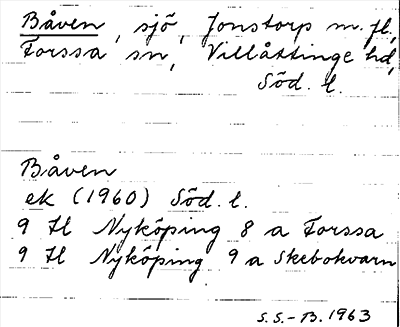 Båven, sjö, Jonstorp m. fl.,
Forssa sn, Villåttinge hd,
Söd. l.
Båven
ek (1960) Söd. l.
9 H Nyköping 8 a Forssa
9 H Nyköping 9 a Skebokvarn
S.S.-B. 1963